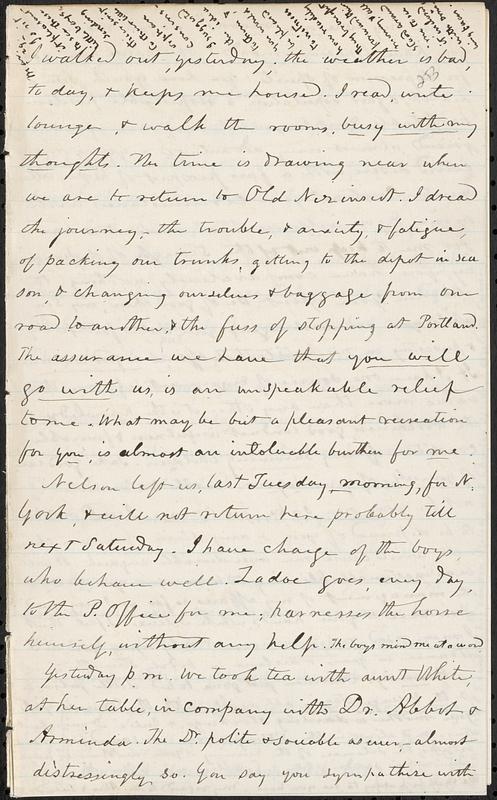 I walked out, yesterday; the weather is bad,
to day, & keeps me housed. I read, write
lounge, & walk the rooms, busy with my
thoughts. The time is drawing near when
we are to return to Old I dread
the journey, - the trouble, & anxiety, & fatigue,
of packing our trunks, getting to the depot in sea
son, & changing ourselves & baggage from one
road to another, & the fuss of stopping at Portland.
The assurance we have that you will
go with us, is an unspeakable relief
to me. What may be but a pleasant recreation
for you, is almost an intolerable burthen for me.
Nelson left us, last Tuesday, morning, for N.
York, & will not return here probably till
next Saturday. I have charge of the boys
who behave well. Zadoc goes, every day,
to the P. Office for me; harnesses the horse
himself, without any help. The boys mind me at a word
Yesterday p.m. we took tea with aunt White,
at her table, in company with Dr. Abbot &
Arminda. The Dr. polite & sociable as ever, - almost
distressingly so. You say you sympathize with